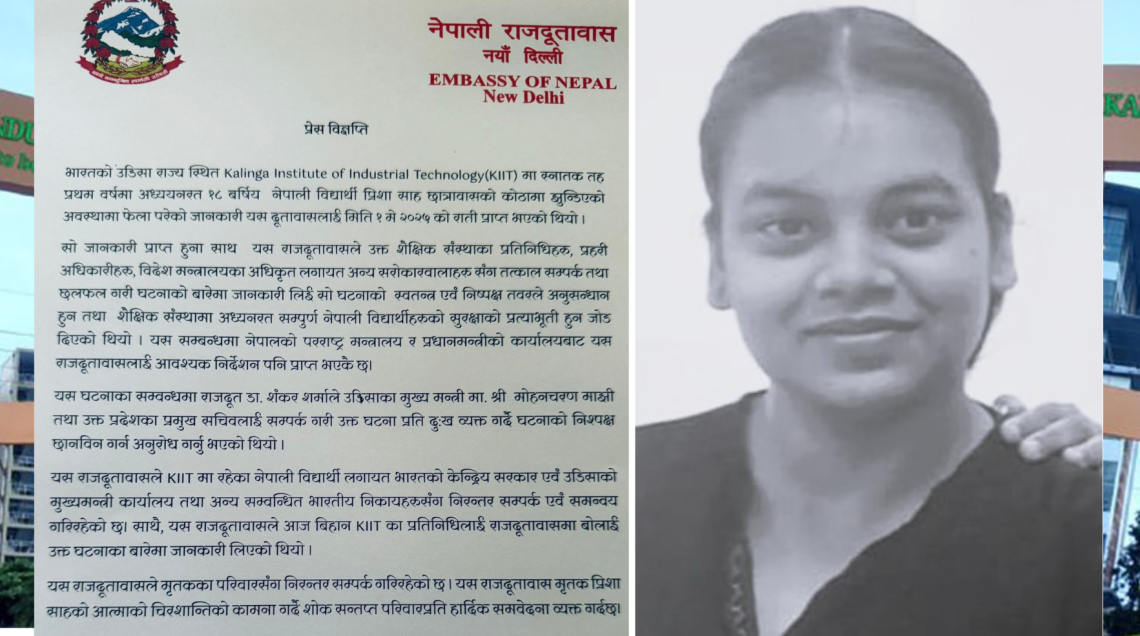 नेपाली राजदूतावास
नयाँ दिल्ली
EMBASSY OF NEPAL
New Delhi
प्रेस विज्ञप्ति
भारतको उडिसा राज्य स्थित Kalinga Institute of Industrial Technology(KIIT) मा स्नातक तह
प्रथम वर्षमा अध्ययनरत १८ बर्षिय नेपाली विद्यार्थी प्रिशा साह छात्रावासको कोठामा झुन्डिएको
अवस्थामा फेला परेको जानकारी यस दूतावासलाई मिति १ मे २०२५ को राती प्राप्त भएको थियो ।
सो जानकारी प्राप्त हुना साथ यस राजदूतावासले उक्त शैक्षिक संस्थाका प्रतिनिधिहरू, प्रहरी
अधिकारीहरू, विदेश मन्त्रालयका अधिकृत लगायत अन्य सरोकारवालाहरू संग तत्काल सम्पर्क तथा
छलफल गरी घटनाको बारेमा जानकारी लिई सो घटनाको स्वतन्त्र एवं निष्पक्ष तवरले अनुसन्धान
हुन तथा शैक्षिक संस्थामा अध्यनरत सम्पुर्ण नेपाली विद्यार्थीहरुको सुरक्षाको प्रत्याभूती हुन जोड
दिएको थियो । यस सम्बन्धमा नेपालको परराष्ट्र मन्त्रालय र प्रधानमन्त्रीको कार्यालयबाट यस
राजदूतावासलाई आवश्यक निर्देशन पनि प्राप्त भएकै छ।
यस घटनाका सम्वन्धमा राजदूत डा. शंकर शर्माले उडिसाका मुख्य मन्त्री मा. श्री मोहनचरण माझी
तथा उक्त प्रदेशका प्रमुख सचिवलाई सम्पर्क गरी उक्त घटना प्रति दुःख व्यक्त गर्दै घटनाको निश्पक्ष
छानविन गर्न अनुरोध गर्नु भएको थियो ।
यस राजदूतावासले KIIT मा रहेका नेपाली विद्यार्थी लगायत भारतको केन्द्रिय सरकार एवं उडिसाको
मुख्यमन्त्री कार्यालय तथा अन्य सम्वन्धित भारतीय निकायहरुसंग निरन्तर सम्पर्क एवं समन्वय
गरिरहेको छ। साथै, यस राजदूतावासले आज बिहान KIIT का प्रतिनिधिलाई राजदूतावासमा बोलाई
उक्त घटनाका बारेमा जानकारी लिएको थियो ।
यस राजदूतावासले मृतकका परिवारसंग निरन्तर सम्पर्क गरिरहेको छ । यस राजदूतावास मृतक प्रिशा
साहको आत्माको चिरशान्तिको कामना गर्दै शोक सन्तप्त परिवारप्रति हार्दिक समवेदना व्यक्त गर्दछ।